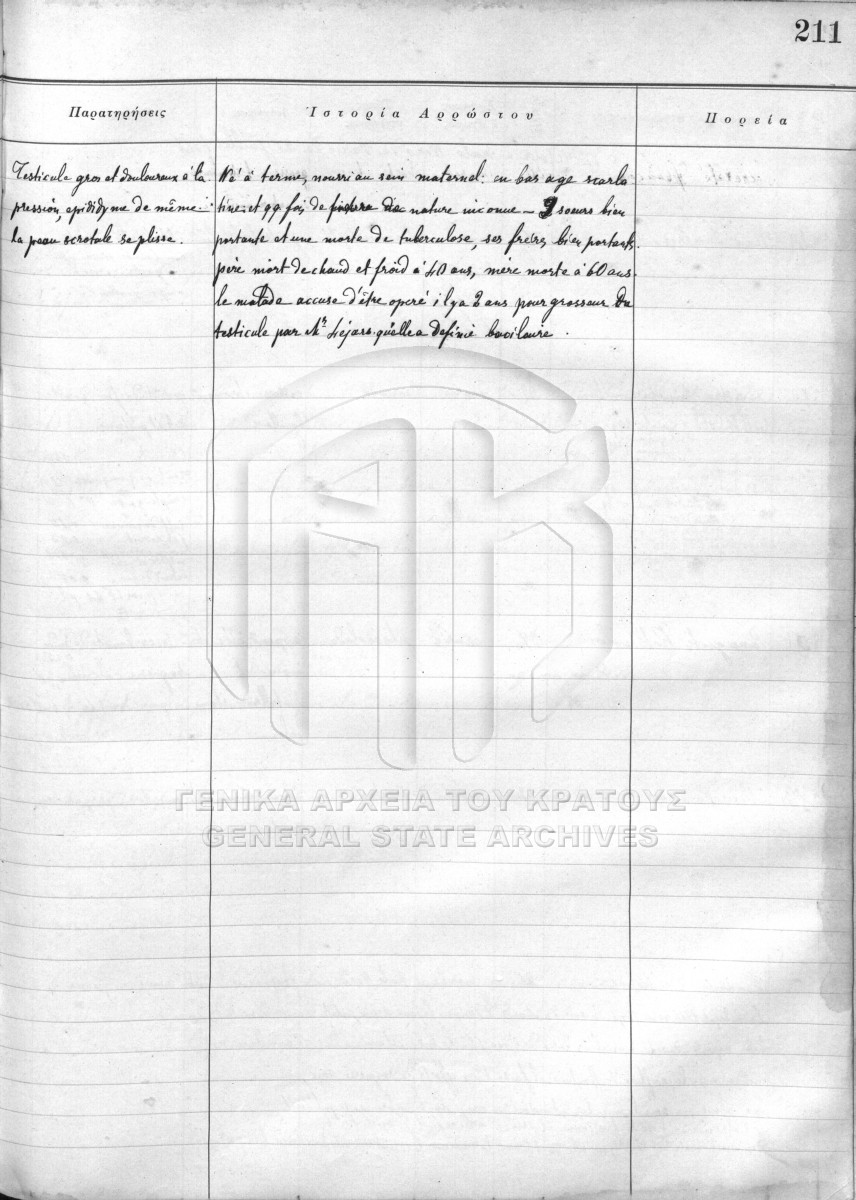 211
Παρατηρήσεις
Ἱστορία Ἀρρώστου
Πορεία
Testicule gros et douloureux à la
pression, epididyme de même.
la peau scrotale se plisse.
Né à terme, nourri au sein maternel. en bas age scarla
tine. et qq fois de fièvre de nature inconue — soeurs bien
portante et une morte de tuberculose, ses frères bien portants
père mort de chaud et froid à 40 ans, mère morte à 60 ans.
le malade accuse d'être operé il y a 2 ans pour grosseur du
testicule par Mr quélle a definie bacilaire.
ΓΕΝΙΚΑ ΑΡΧΕΙΑ ΤΟΥ ΚΡΑΤΟΥΣ
GENERAL STATE ARCHIVES